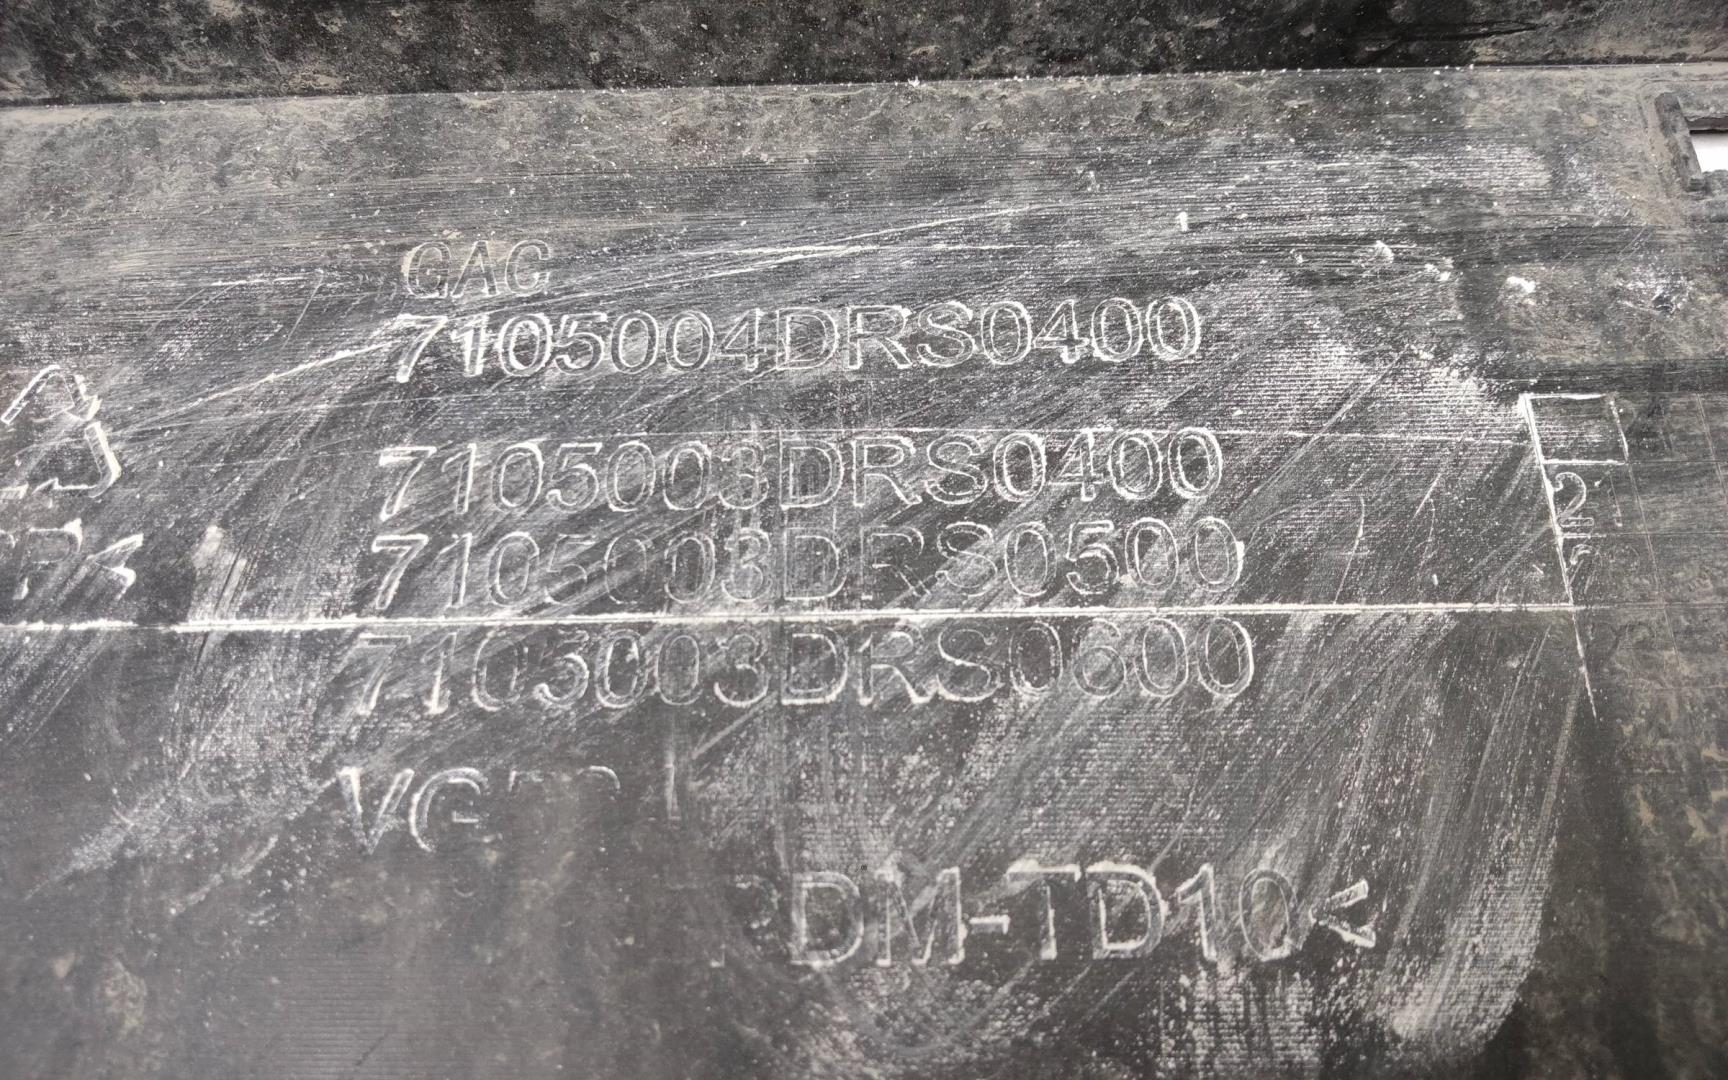 GAC
7105004DRS0400
7105003DRS0400
7105003DRS0500
7105003DRS0600
P<
DM-TD10<